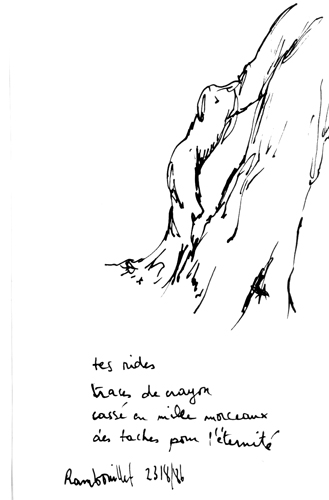 tes rides
traces de crayon
cassé en mille morceaux
des taches pour l'éternité
Rambouillet 23/8/86